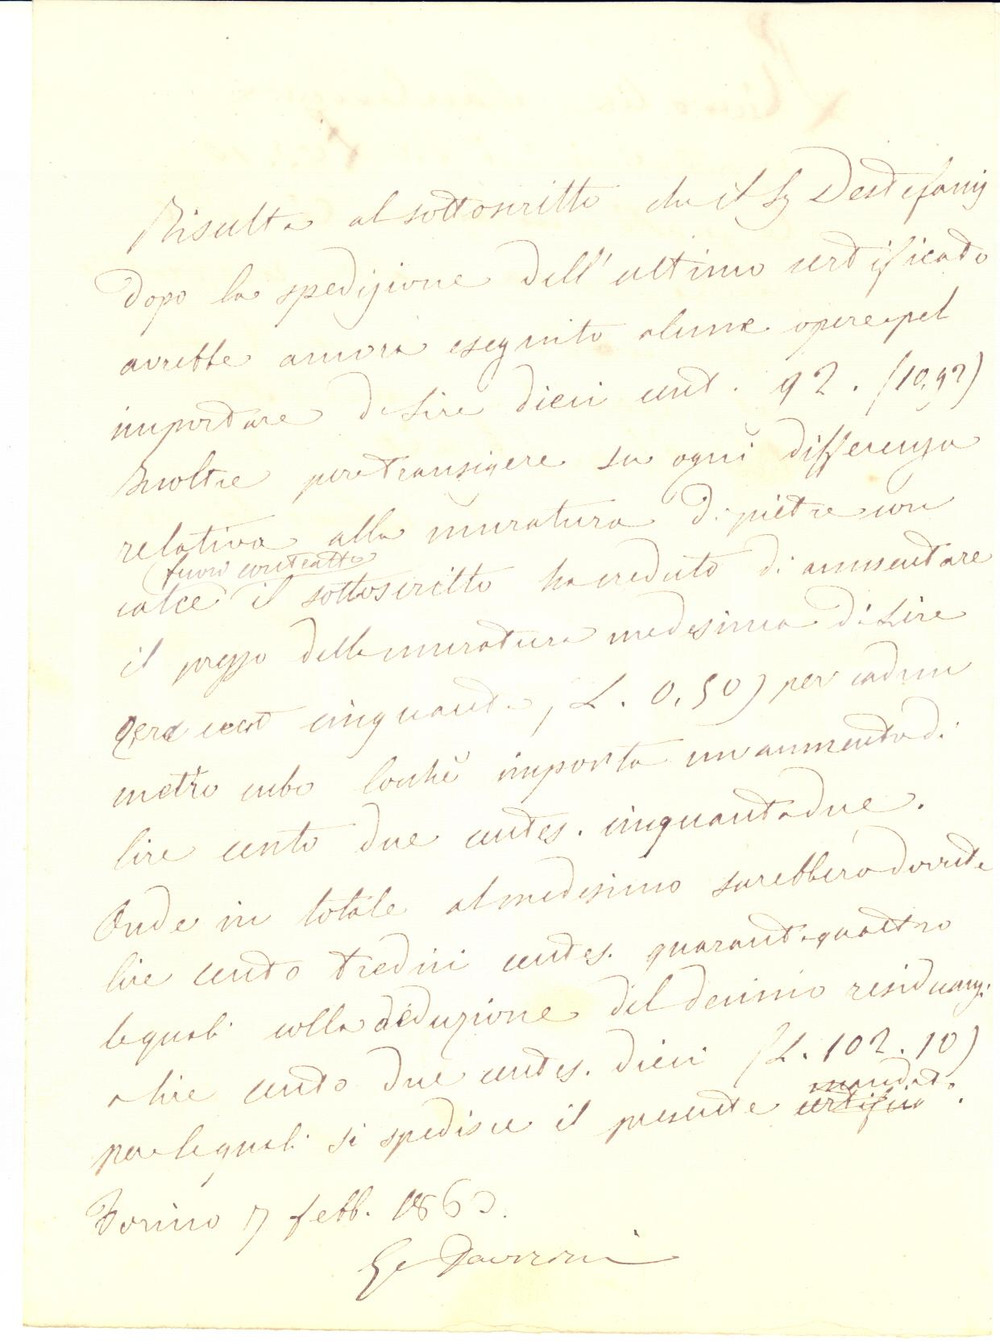 Risulta al sottoscritto che il Sg Destefanis
dopo la spedizione dell'ultimo certificato
avrebbe ancora eseguito alcune opere pel
importare di Lire dieci cent. 92. (10,92)
Inoltre per transigere su ogni differenza
relativa alla muratura di pietre con
fuori contratto
calce il sottoscritto ha creduto di aumentare
il prezzo della muratura medesima di Lire
Zero cent cinquanta, (L. 0,50) per cadun
metro cubo locchè importa un aumento di
lire cento due centes. cinquantadue.
Onde in totale al medesimo sarebbero dovute
lire cento tredici centes. quarantaquattro
le quali colla deduzione del decimo residuansi
a lire cento due centes. dieci (L. 102.10)
mandato
per le quali si spedisce il presente certificato.
Torino 7 febb. 1863.